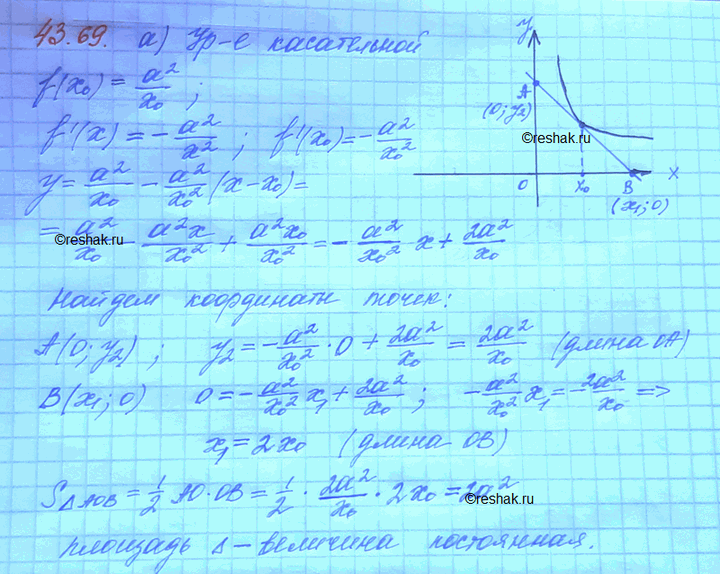 43.69. а) Ур-е касательной
f(x₀) = a²/x₀ ;
f'(x) = -a²/x² ; f'(x₀) = -a²/x₀²
y = a²/x₀ - a²/x₀² (x - x₀) =
= a²/x₀ - a²x/x₀² + a²x₀/x₀² = -a²/x₀² x + 2a²/x₀
y
A
(0; y₂)
0
x₀
B
x
(x₁; 0)
©reshak.ru
©reshak.ru
Найдем координаты точек:
A(0; y₂) ; y₂ = -a²/x₀² · 0 + 2a²/x₀ = 2a²/x₀ (длина OA)
B(x₁; 0) 0 = -a²/x₀² x₁ + 2a²/x₀ ; -a²/x₀² x₁ = -2a²/x₀ =>
x₁ = 2x₀ (длина OB)
S△AOB = 1/2 AO · OB = 1/2 · 2a²/x₀ · 2x₀ = 2a²
©reshak.ru
площадь Δ – величина постоянная.